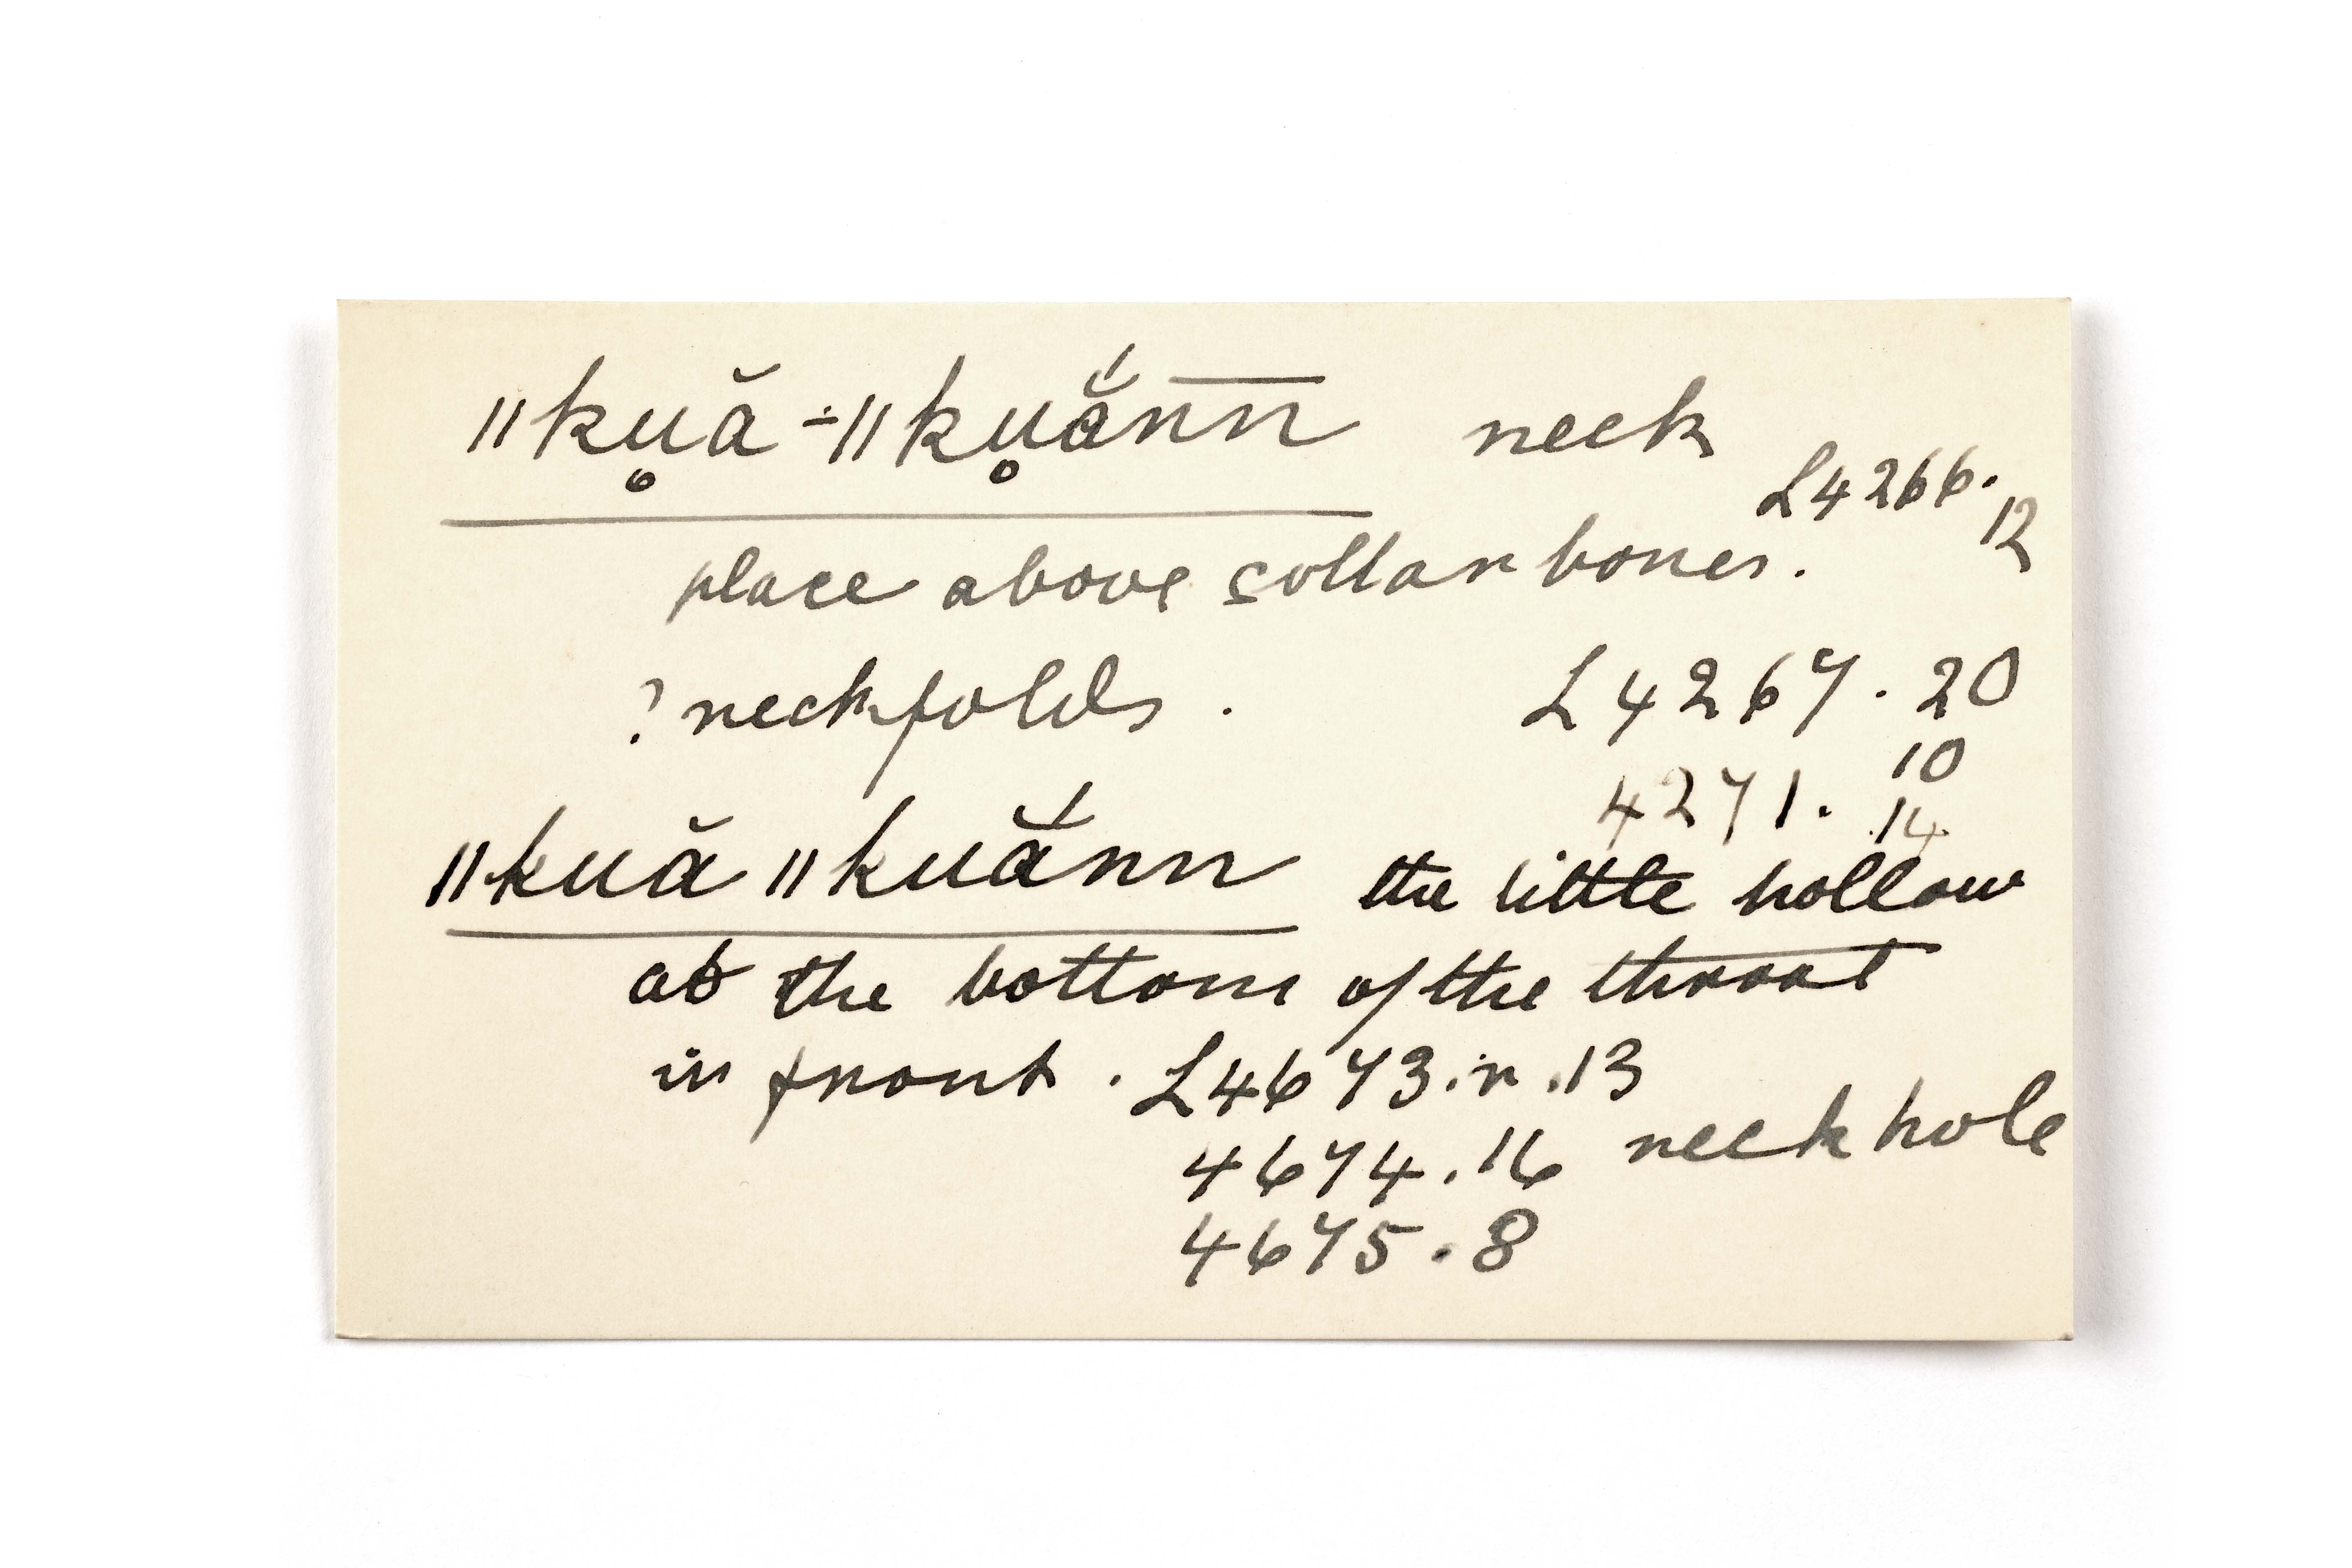 ǁku̥ă-ǁku̥ắn̅n̅ neck
L4266.12
place above collar bones.
? neckfolds. L4267.20
4271. 10
14
ǁkuă ǁkuắnn the little hollow
at the bottom of the throat
in front. L4673.r.13
4674.16 neck hole
4675.8